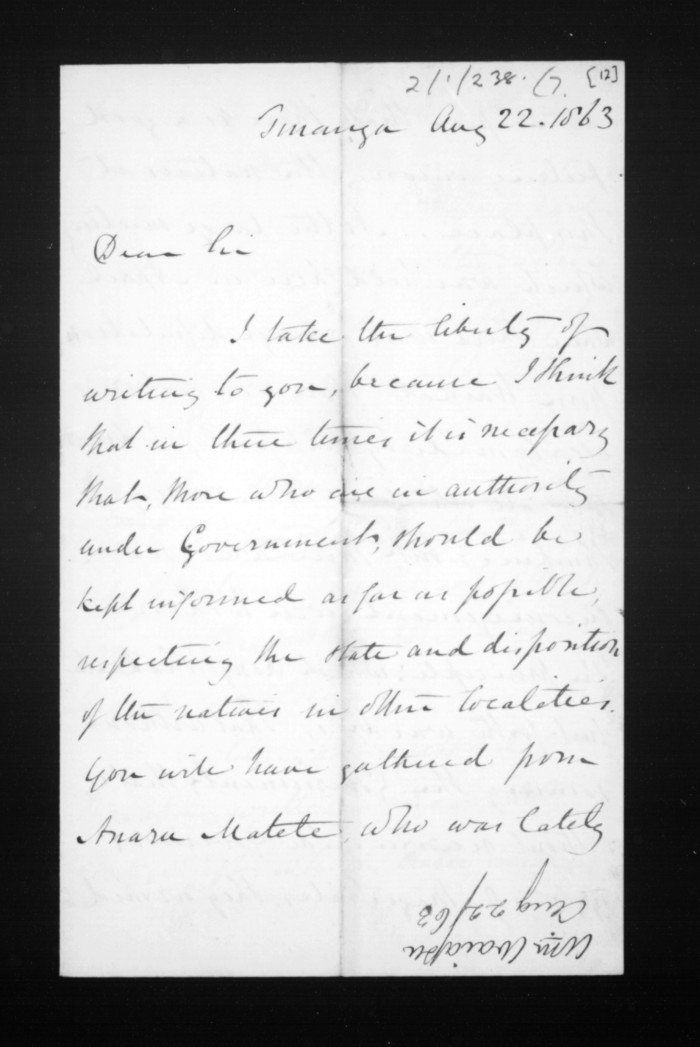 [12]
Turanga Aug 22. 1863
Dear Sir
I take the liberty of
writing to you, because I think
that in these times it is necessary
that, those who are in authority
under Government, should be
kept informed as far as possible,
respecting the state and disposition
of the natives in other localities.
You will have gathered from
Anaru Matete, who was lately
Aug 22/63